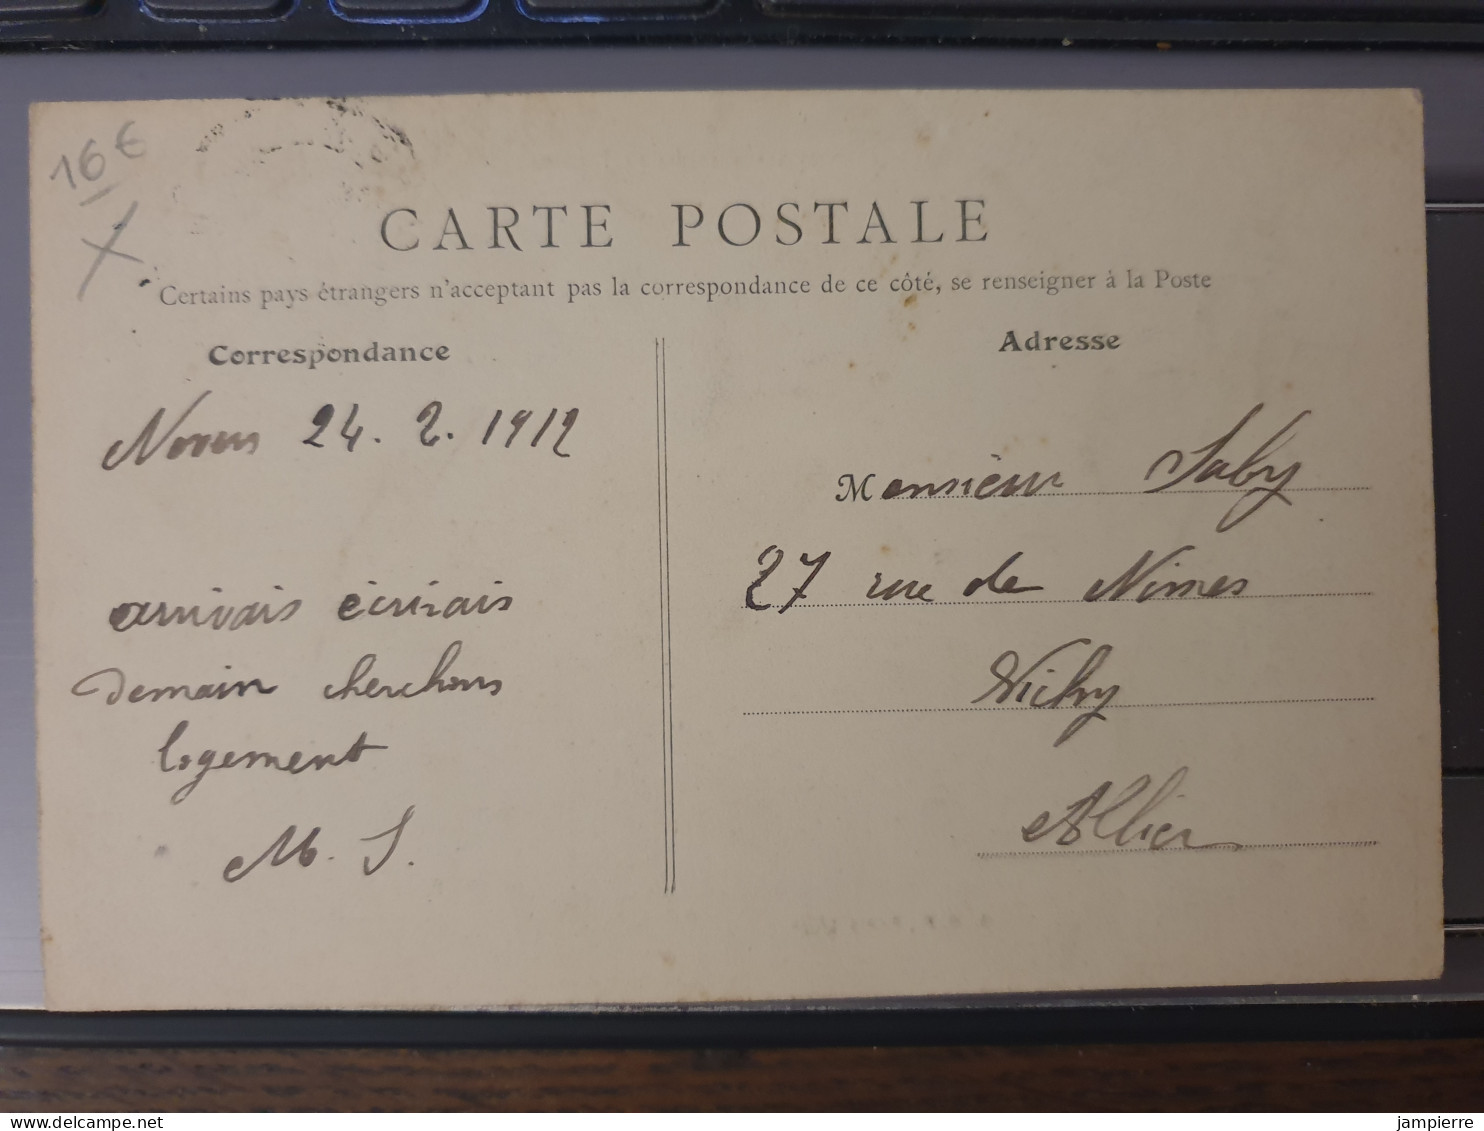 16€
CARTE POSTALE
Certains pays étrangers n'acceptant pas la correspondance de ce côté, se renseigner à la Poste
Correspondance
Adresse
Nevers 24. 2. 1912
arrivais écrirais
Demain cherchons
logement
M. S.
Monsieur Saby
27 rue de Nimes
Vichy
Allier
jampierre